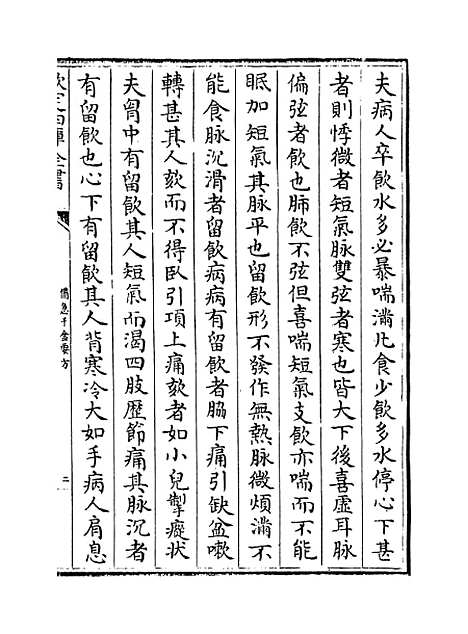 夫病人卒飲水多必暴喘滿凡食少飲多水停心下甚
者則悸微者短氣脉雙弦者寒也皆大下後喜虛耳脉
偏弦者飲也肺飲不弦但喜喘短氣支飲亦喘而不能
眠加短氣其脉平也留飲形不發作無熱脉微煩滿不
能食脉沉滑者留飲病病有留飲者脇下痛引缺盆嗽
轉甚其人欬而不得臥引項上痛欬者如小兒掣瘲狀
夫胷中有留飲其人短氣而渴四肢歷節痛其脉沉者
有留飲也心下有留飲其人背寒冷大如手病人肩息
欽定四庫全書
備急千金要方
二